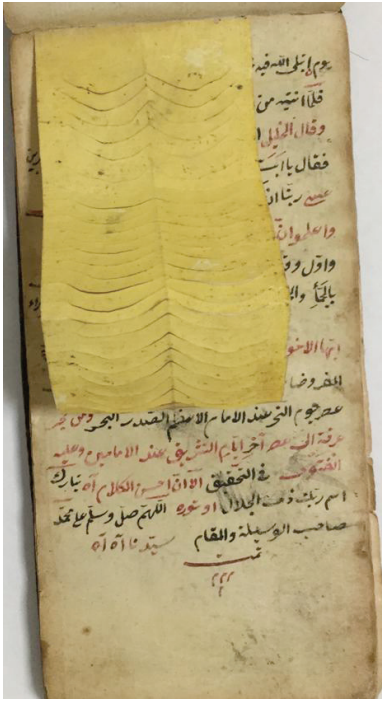 يوم ابتلى الله فيه
فلما انتبه من
وقال الخليل
فقال يا ابت
عسى ربنا ان
واعلموا ان
واول وو
ايها الاخو
المفروضا
عصر يوم النحر عند الامام الاعظم الصدر
عرفة الى عصر آخر ايام التشريق عند الامامين وعليه
الفتوى في التحقيق الا ان احسن الكلام آه تبارك
اسم ربك ذى الجلال او نوره اللهم صل وسلم على محمد
صاحب الوسيلة والمقام سيدنا آه آه
تمت